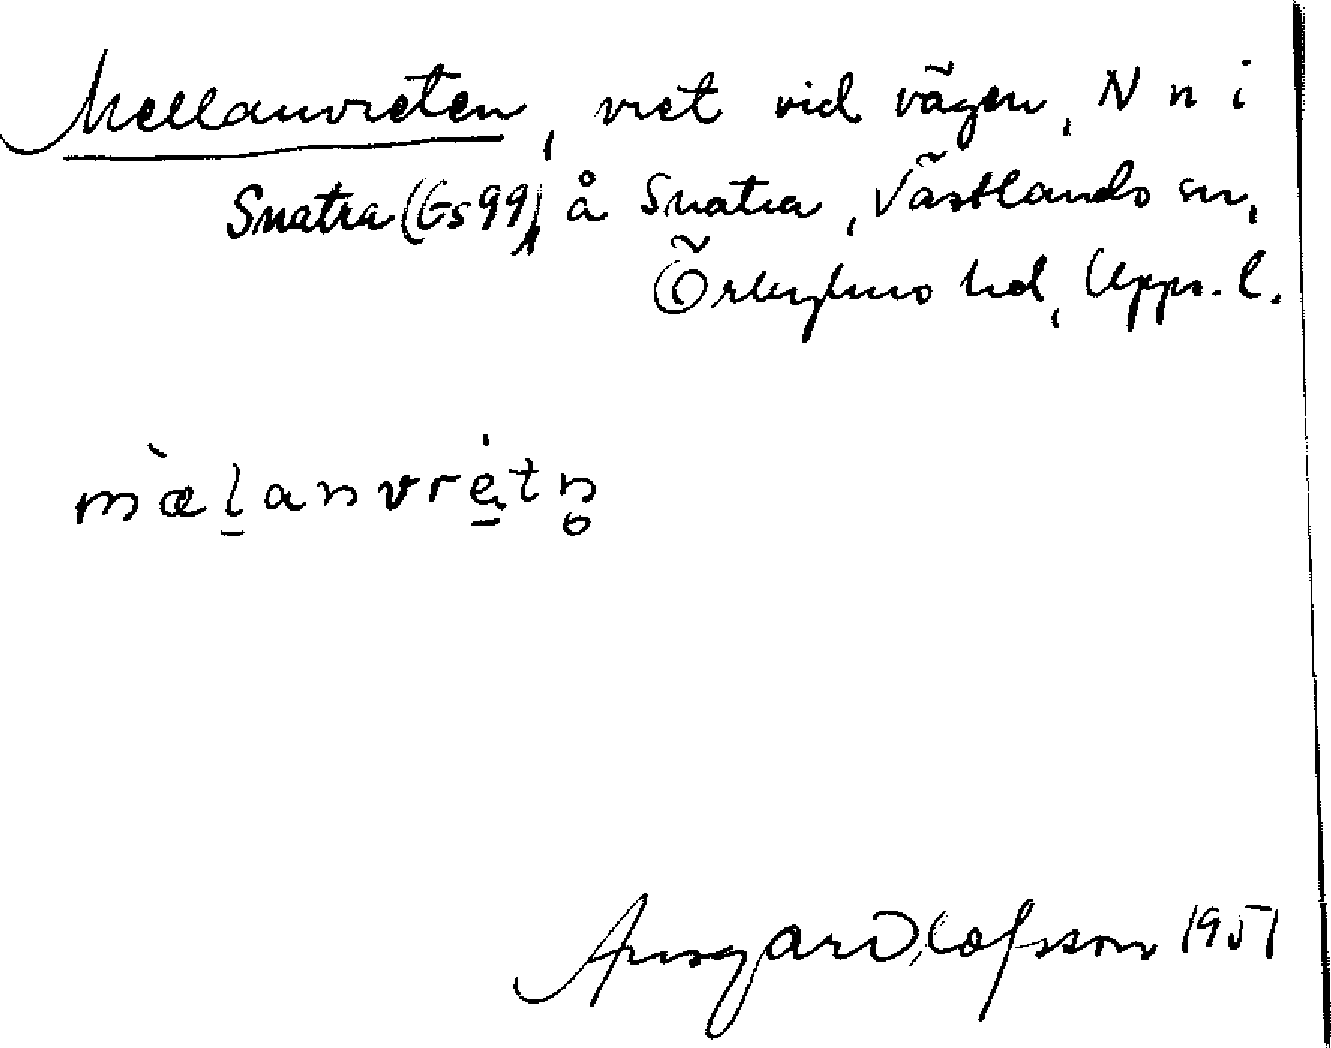 Mellanvreten, vret vid vägen, N n i
Snatra (Gs 99), å Snatra, Västlands sn,
Örbyhus hd, Upps. l.
mæ̀l̠anvrė̠tn̥
Ansgar Olofsson 1951